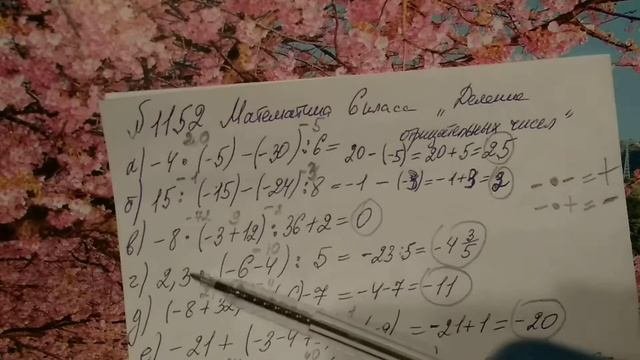 №1152 Математика 6 класс "Деление
отрицательных чисел"
а) -4 · (-5) - (-30) : 6 = 20 - (-5) = 20 + 5 = 25
б) 15 : (-15) - (-24) : 8 = -1 - (-3) = -1 + 3 = 2
в) -8 · (-3 + 12) : 36 + 2 = 0
г) 2,3 · (-6 - 4) : 5 = -23 : 5 = -4 3/5
д) (-8 + 32) - 7 = -4 - 7 = -11
е) -21 + (-3 - 4 = -21 + 1 = -20
- · - = +
- · + = -